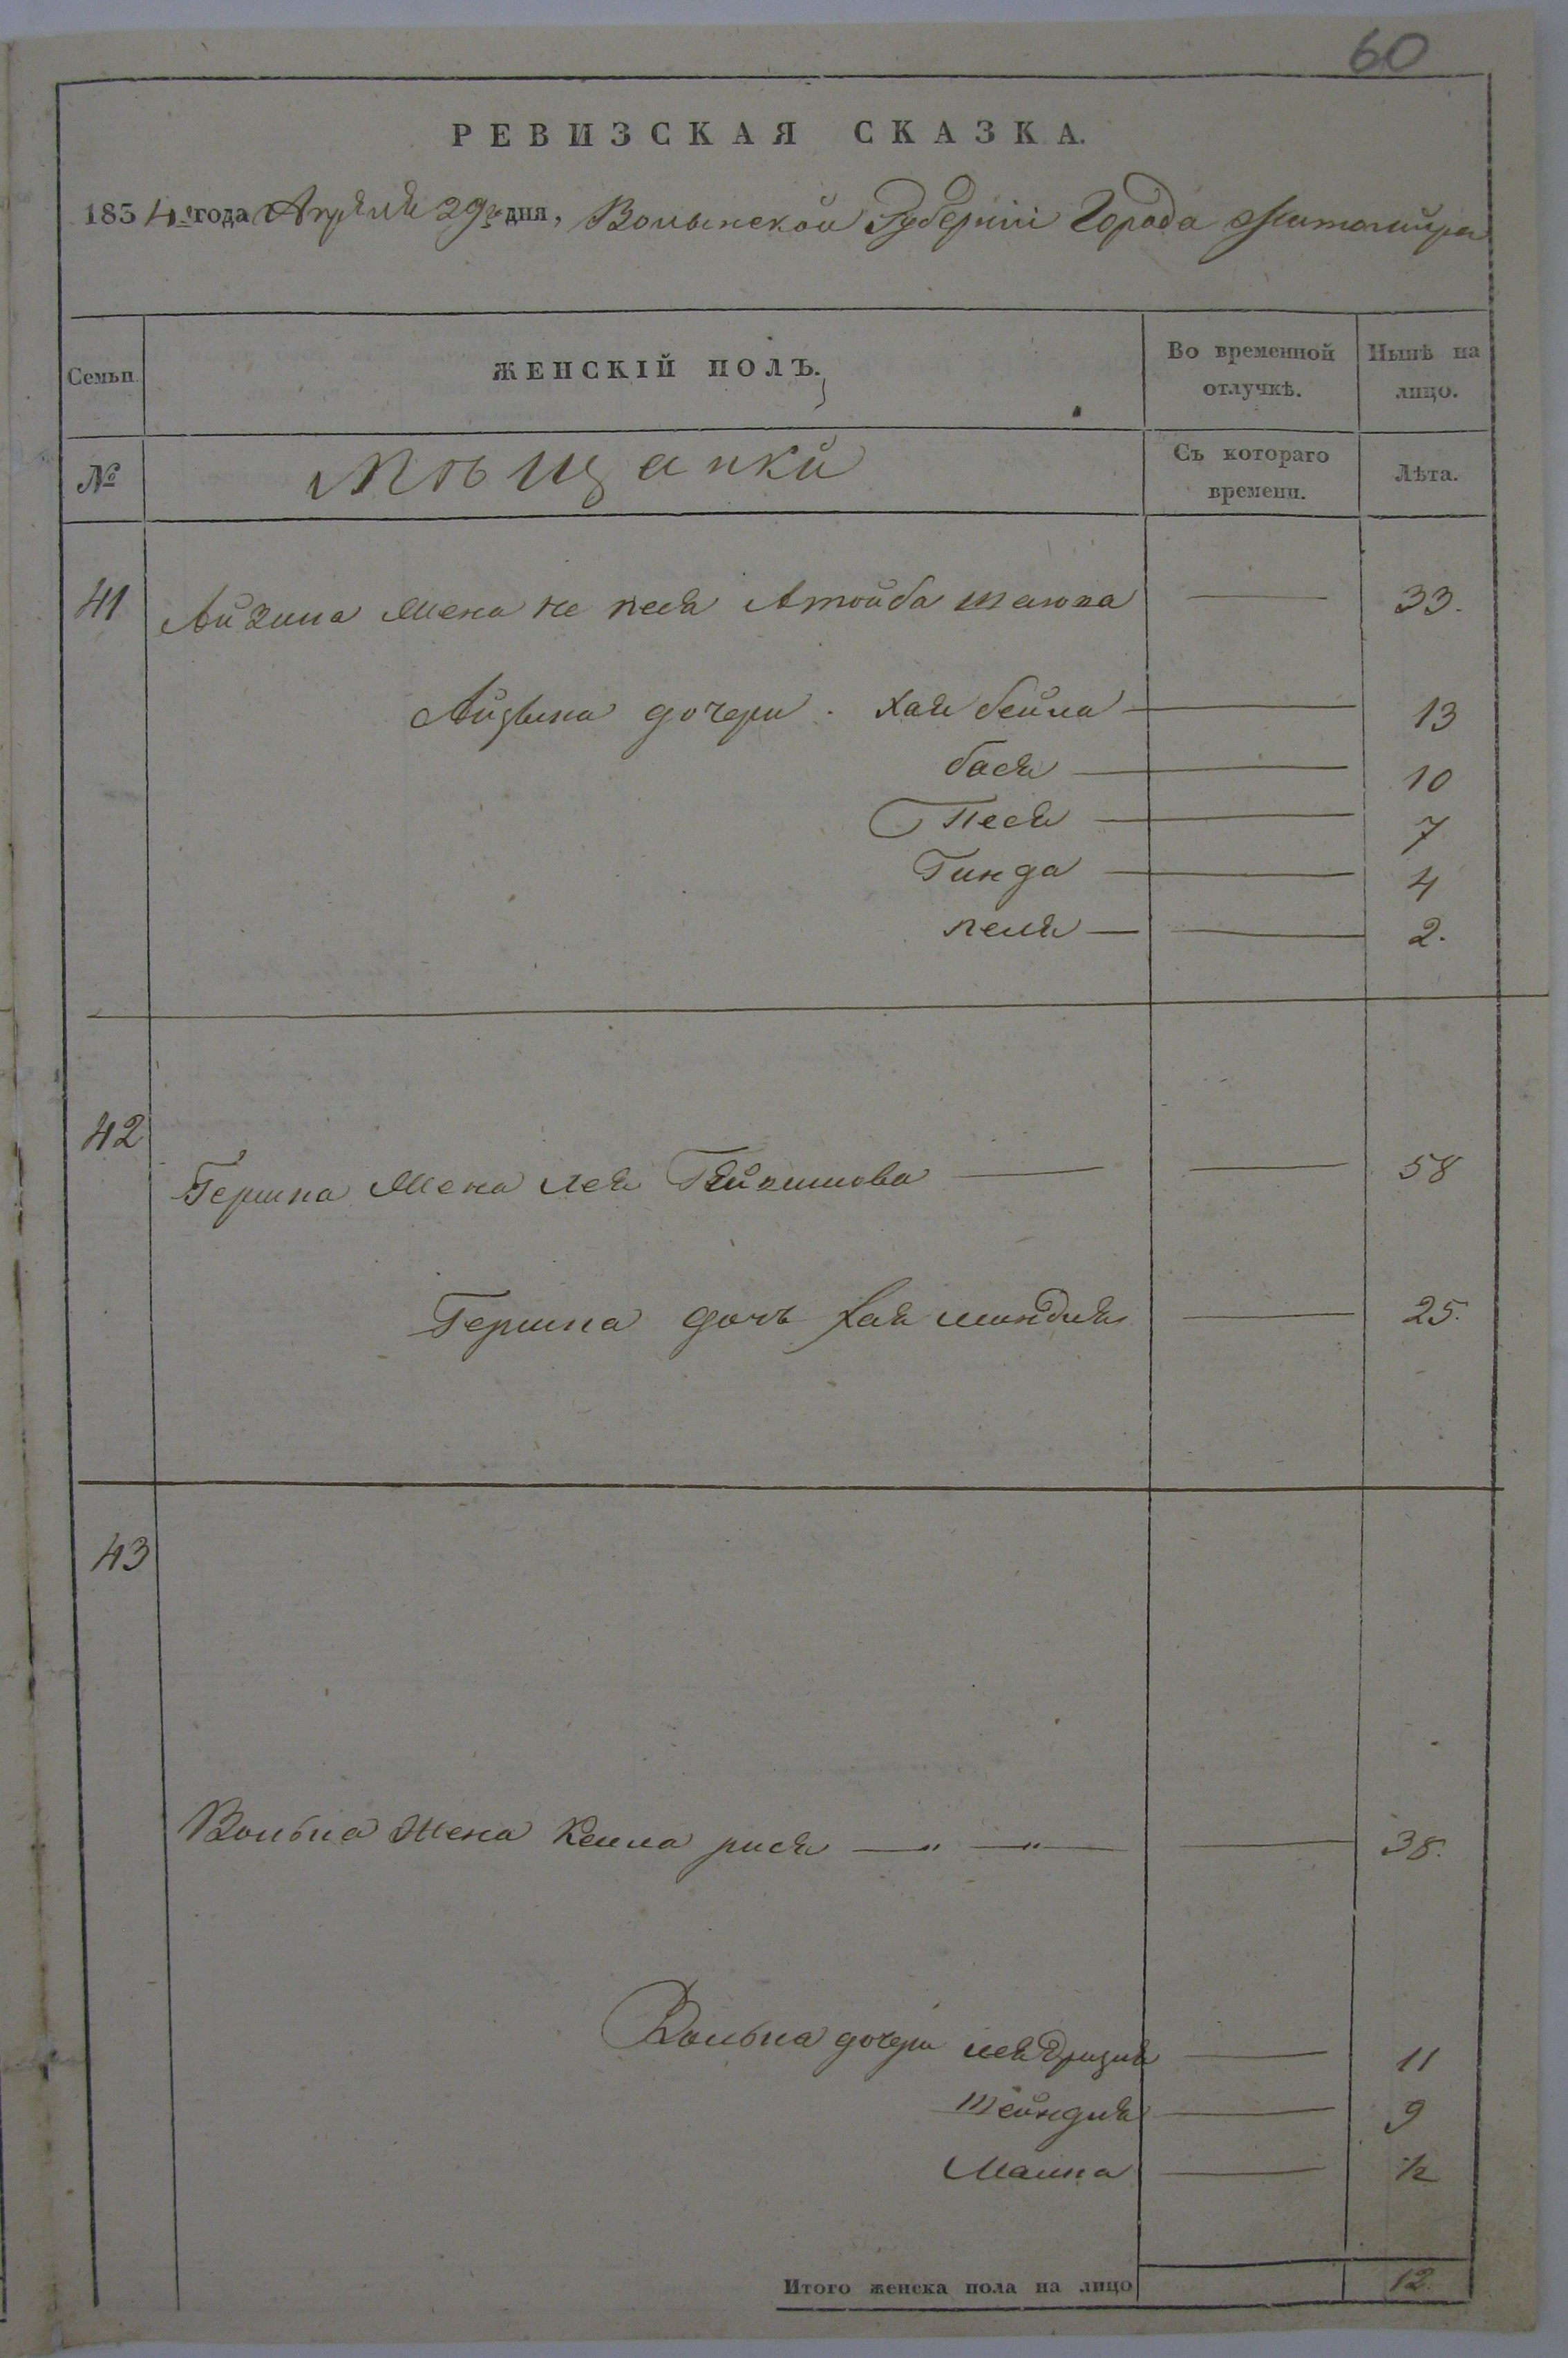 60
РЕВИЗСКАЯ СКАЗКА.
1834го года Апреля 29го дня, Волынской Губернiи Города Житомира
Семьи. ЖЕНСКІЙ ПОЛЪ. Во временной отлучкѣ. Нынѣ на лицо.
№ Мѣщанки Съ котораго времени. Лѣта.
41 жена — 33.
дочери. Хая бейла — 13
бася — 10
Песя — 7
Гинда — 4
2.
42
Гершка жена лея — 58
Гершка дочь Хая миндля — 25.
43
Вольфа жена рися —„ —„— — 38.
Вольфа дочери — 11
шейндля — 9
Малка — ½
Итого женска пола на лицо 12.